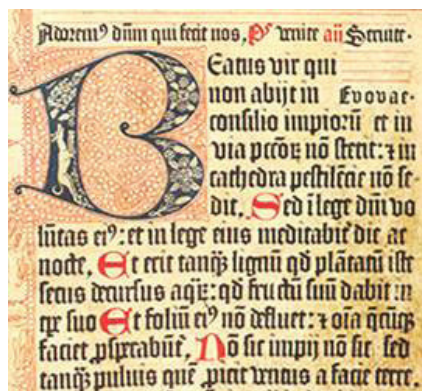 Adorem⁹ dn̄m qui fecit nos, Ps̄ venite an̄ Seruite.
Beatus vir qui
non abijt in Evovae.
consilio impiorū et in
via pccōꝝ nō stetit: ⁊ in
cathedra pestilēcie nō se-
dit, Sed ī lege dn̄i vo
lūtas ei⁹: et in lege eius meditabit̄ die ac
nocte, Et erit tanqꝫ lignū qd̄ plātatū iste
secus decursus aqꝝ: qd̄ fructū suū dabit in
tꝑe suo Et foliū ei⁹ nō defluet: ⁊ oīa q̄cūqꝫ
faciet ꝓsꝑabūt̄, Nō sic impij nō sic sed
tanqꝫ puluis quē ꝓicit ventus a facie terre,